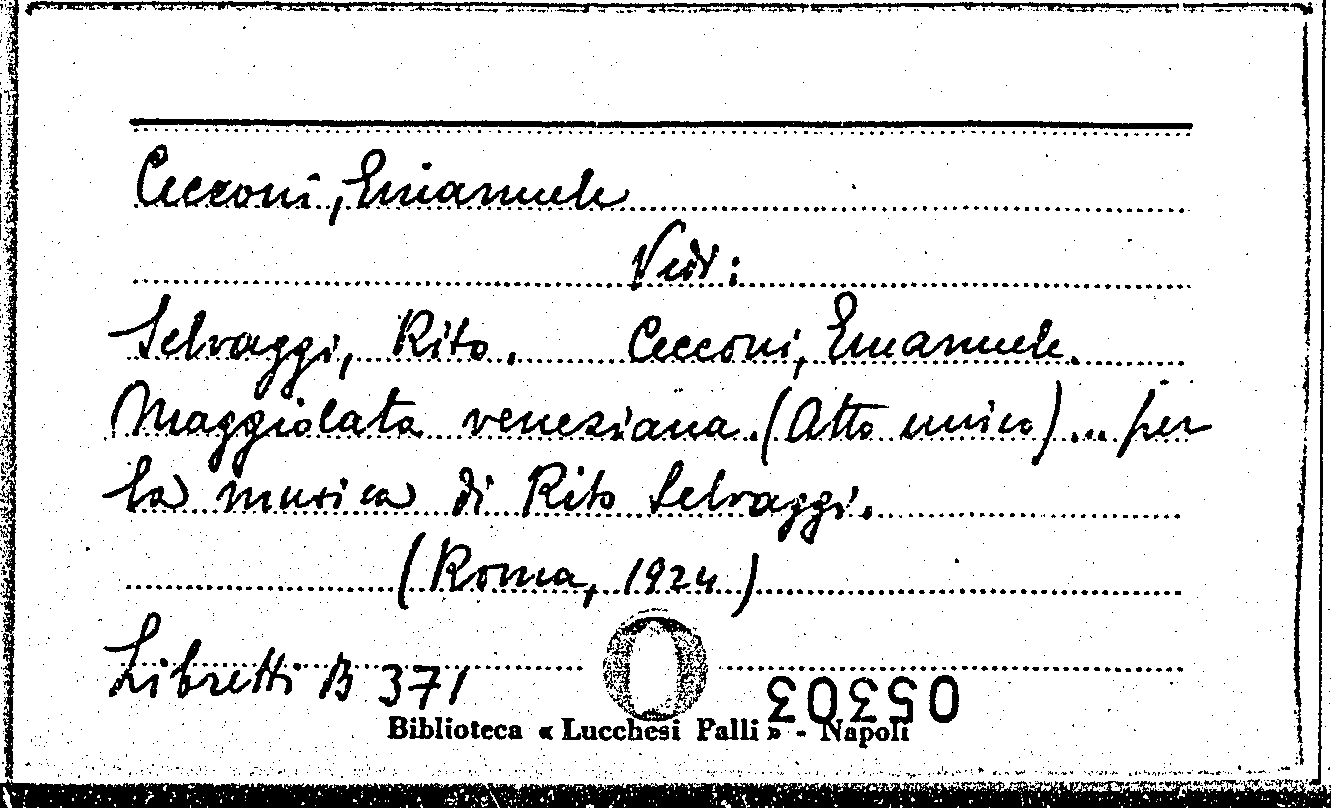 Cecconi, Emanuele
Vedi:
Selvaggi, Rito. Cecconi, Emanuele.
Maggiolata veneziana. (Atto unico)... per
la musica di Rito Selvaggi.
(Roma, 1924)
Libretti B 371
05303
Biblioteca « Lucchesi Palli » - Napoli